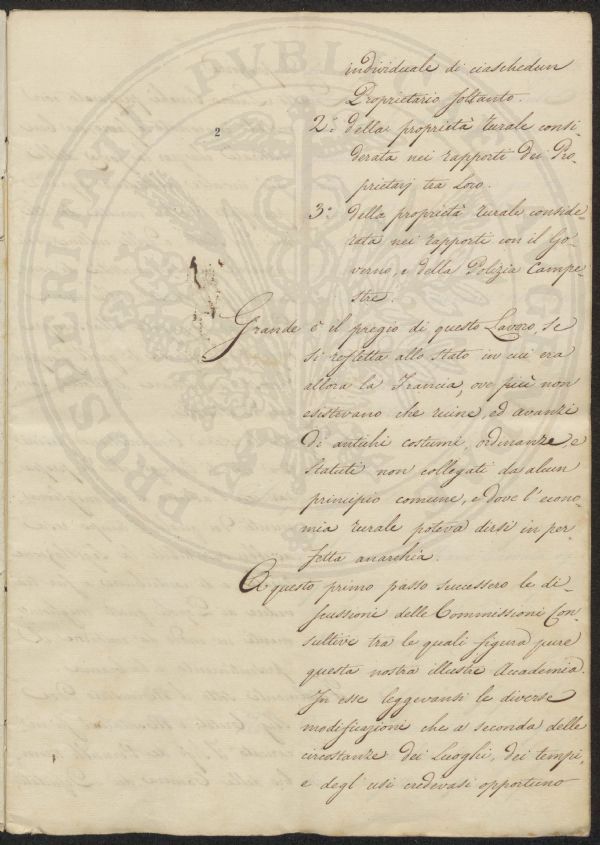 individuale di ciaschedun
Proprietario soltanto.
2
2.° della proprietà rurale consi-
derata nei rapporti dei Pro-
prietarj tra Loro.
3.° della proprietà rurale conside-
rata nei rapporti con il Go-
verno, e della Polizia Campe-
stre.
Grande è il pregio di questo Lavoro, se
si rifletta allo stato in cui era
allora la Francia, ove più non
esistevano che ruine, ed avanzi
di antichi costumi, ordinanze, e
Statuti non collegati da alcun
principio comune, e dove l'econo-
mia rurale poteva dirsi in per-
fetta anarchia.
A questo primo passo successero le di-
scussioni delle Commissioni Con-
sultive tra le quali figura pure
questa nostra illustre Accademia.
In esse leggevansi le diverse
modificazioni che a seconda delle
circostanze dei Luoghi, dei tempi,
e degl'usi credevasi opportuno
PROSPERITATI PUBLICAE